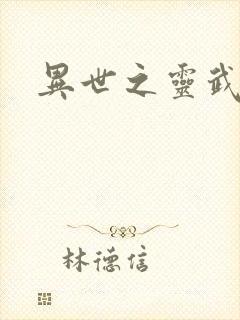 異世之靈武
林德信